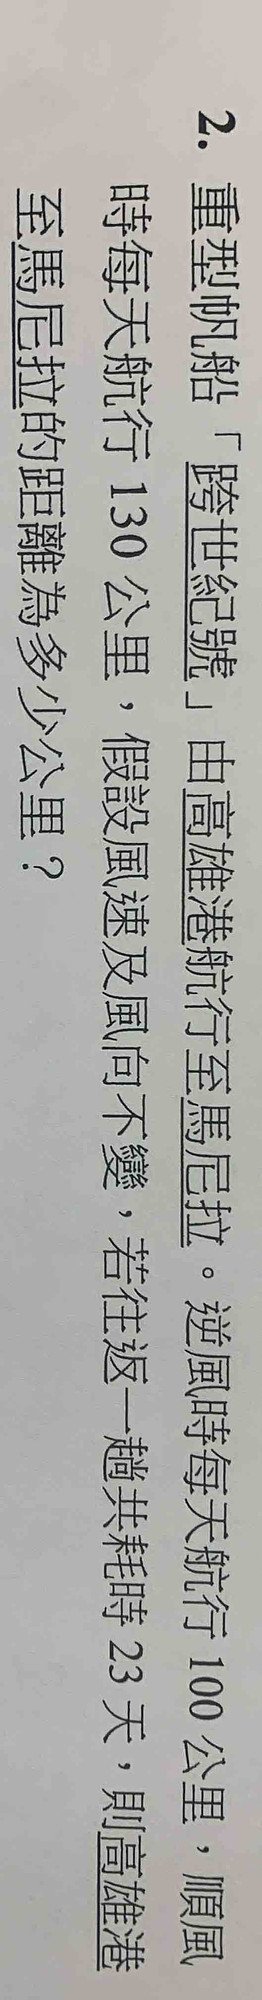 2. 重型帆船「跨世紀號」由高雄港航行至馬尼拉。逆風時每天航行 100 公里，順風
時每天航行 130 公里，假設風速及風向不變，若往返一趟共耗時 23 天，則高雄港
至馬尼拉的距離為多少公里？